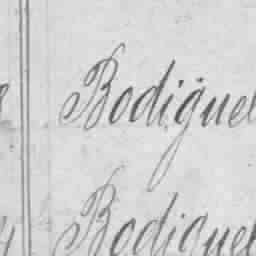 Bodiguel
Bodiguel